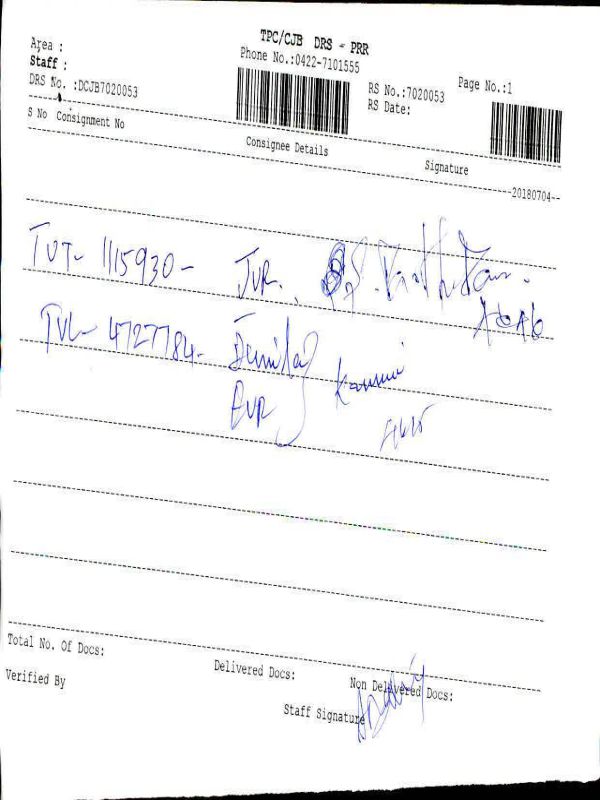 TPC/CJB DRS - PRR
Area :
Phone No.:0422-7101555
Staff :
RS No.:7020053
Page No.:1
DRS No. :DCJB7020053
RS Date:
S No Consignment No
Consignee Details
Signature
20180704
TUT- 1115930-
JVR.
TVL- 4727784-
EVR
Kannui
Total No. Of Docs:
Delivered Docs:
Non Delivered Docs:
Verified By
Staff Signature